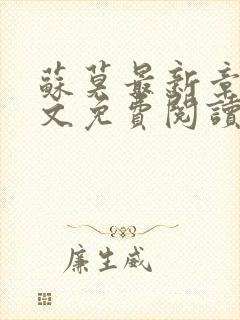 蘇莫最新章
文免費閱讀
廉生威